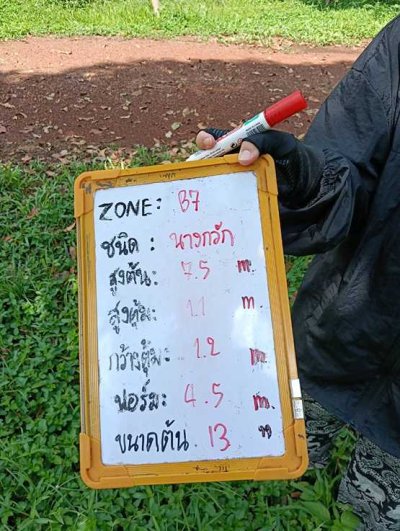 ZONE: B7
ชนิด : นางกวัก
สูงต้น: 7.5 m.
สูงตุ้ม: 1.1 m.
กว้างตุ้ม: 1.2 m.
ฟอร์ม: 4.5 m.
ขนาดต้น 13 "